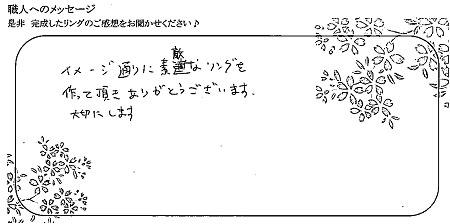 職人へのメッセージ
是非 完成したリングのご感想をお聞かせください♪
イメージ通りに素敵なリングを
作って頂きありがとうございます.
大切にします